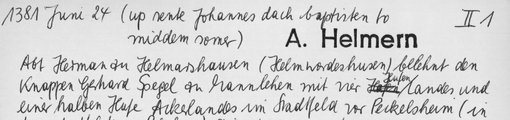 1381 Juni 24 (up sente Johannes dach baptisten to II 1
middem somer) A. Helmern
Abt Herman zu Helmarshausen (Helmwordeshusen) belehnt den
Knappen Gerhard Spegel zu Mannlehen mit vier Hufen Landes und
einer halben Hufe Ackerlandes im Stadtfeld vor Peckelsheim (in